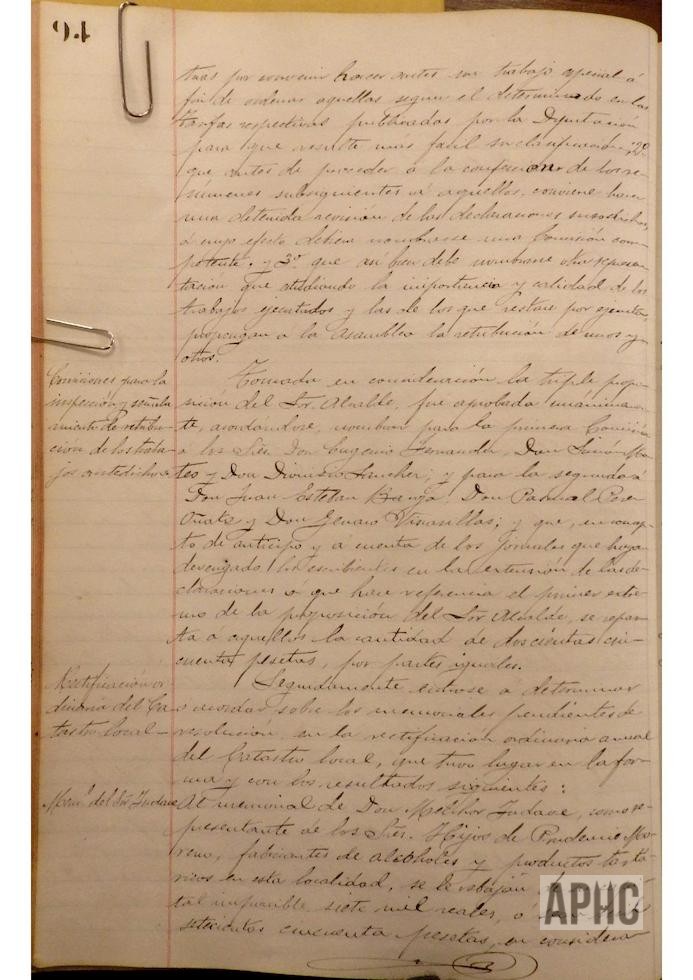 94
tuas por convenir hacer antes un trabajo especial á
fin de ordenar aquellas segun el determinado en las
tarifas respectivas publicadas por la Diputación
para que resulte mas facil su clasificación; 2º
que, antes de proceder a la confección de los re-
súmenes subsiguientes á aquellas, conviene hacer
una detenida revisión de las declaraciones susodichas,
á cuyo efecto debiera nombrarse una Comisión com-
petente; y 3º que asi bien debe nombrarse otra represen-
tación que estudiando la importancia y calidad de los
trabajos ejecutados y las de los que restare por ejecutar,
propongan a la Asamblea la retribución de unos y
otros.
Comisiones para la
inspección y señala
miento de retribu-
ción de los traba-
jos antedichos
Tomada en consideración la triple propo-
sición del Sor. Alcalde, fue aprobada unánimemen-
te, acordandose, nombrar para la primera Comisión
a los Sres. Don Eugenio Fernandez, Don Simón Ma-
teo y Don Dionisio Sancher; y para la segunda á
Don Juan Esteban Don Pascual Perez
Oñate y Don Genaro Vinasillas; y que, en concep-
to de anticipo y á cuenta de los jornales que hayan
devengado los escribientes en la extensión de las de-
claraciones a que hace referencia el primer extre-
mo de la proposición del Sor Alcalde, se repar-
ta a aquellos la cantidad de doscientas cin-
cuenta pesetas, por partes iguales.
Rectificación or-
dinaria del Ca-
tastro local-
Seguidamente entrose a determinar
o acordar sobre los memoriales pendientes de
resolución en la rectificación ordinaria anual
del Catastro local, que tuvo lugar en la for-
ma y con los resultados siguientes:
Meml. del Sor Indave
Al memorial de Don Melchor Indave, como re-
presentante de los Sres. Hijos de Prudencio Mo-
reno, fabricantes de alcoholes y productos tartá-
ricos en esta localidad, se le rebajan
tal imponible siete mil reales, ó
setecientas cincuenta pesetas, en considera
APHC